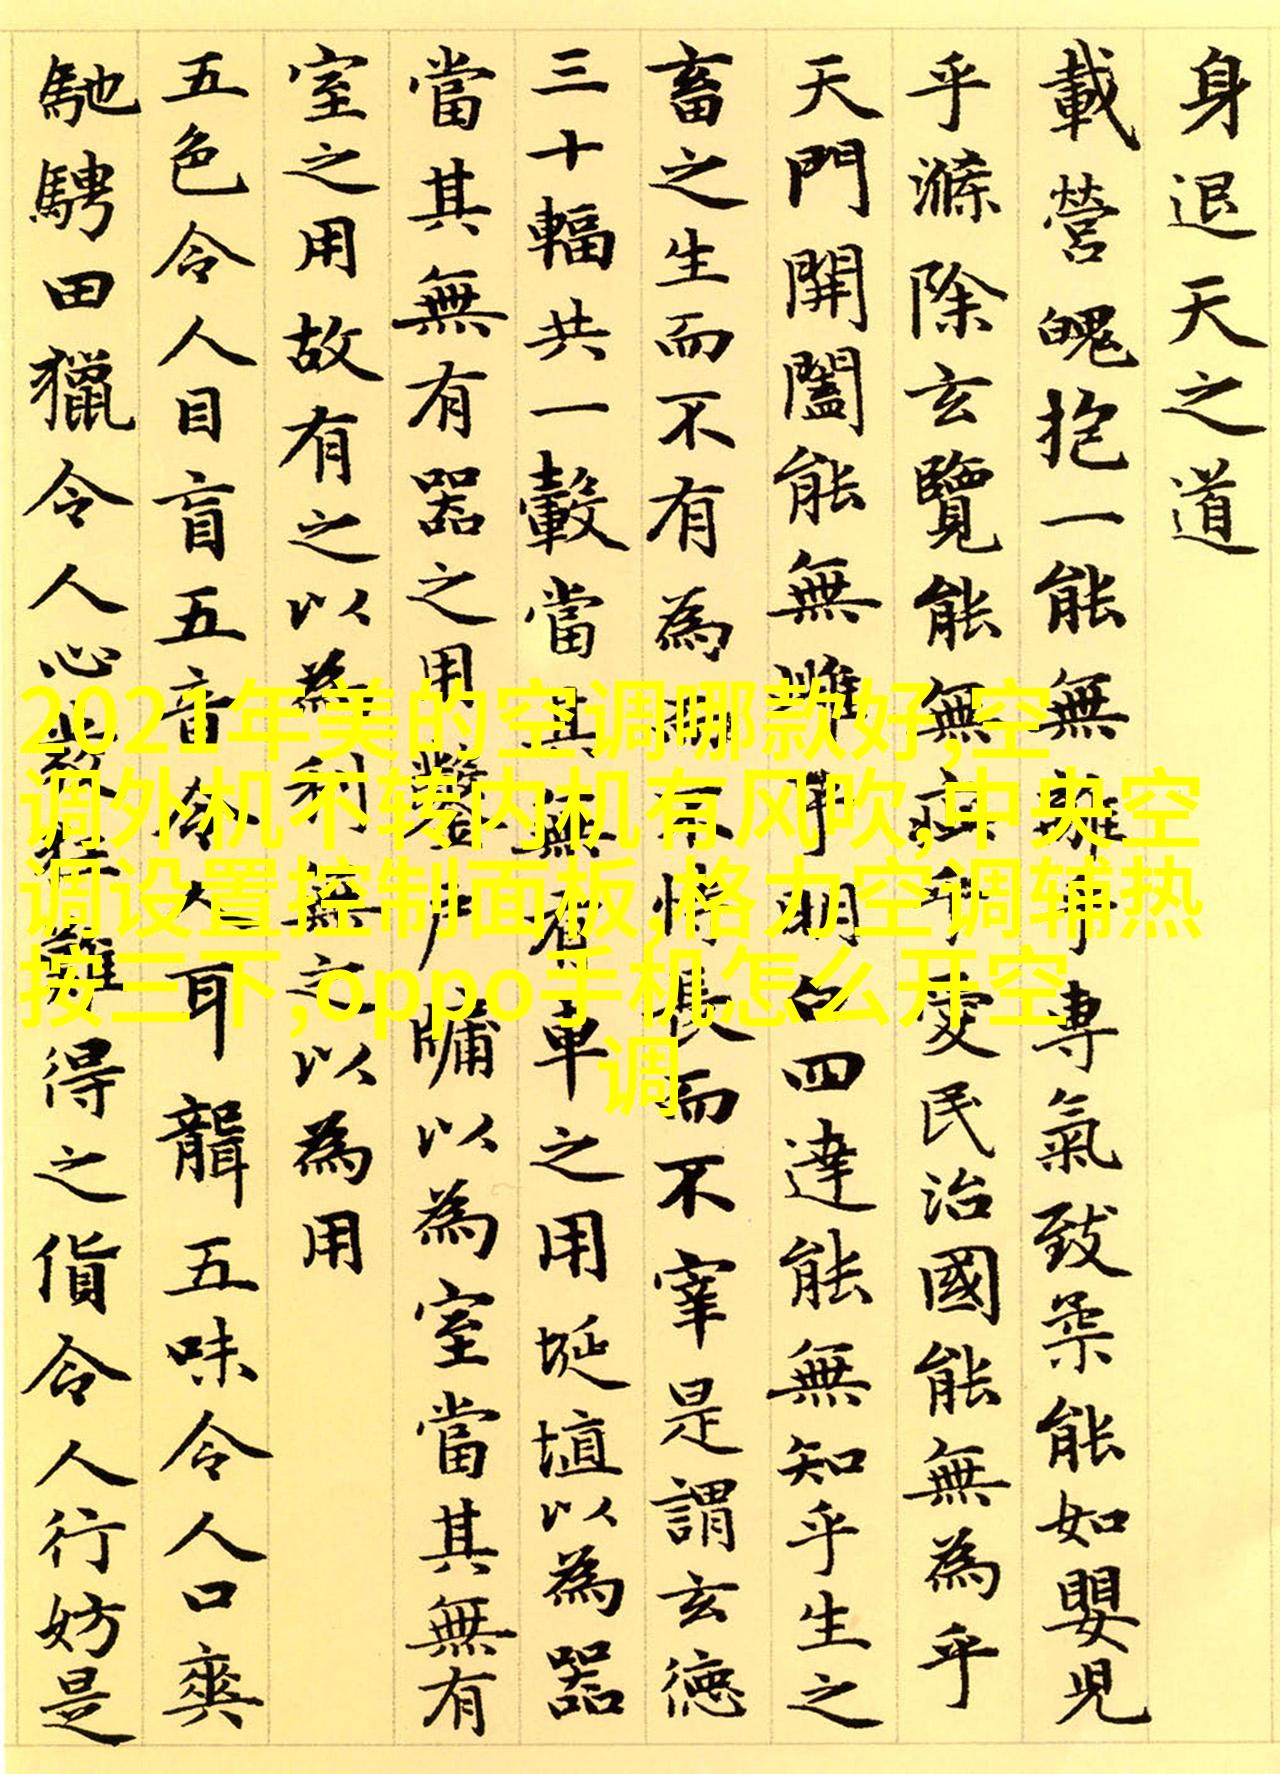 身退天之道
載營魄抱一能無離乎專氣致柔能如嬰兒
乎滌除玄覽能無疵乎愛民治國能無為乎
天門開闔能無雌乎明白四達能無知乎生之
畜之生而不有為而不恃長而不宰是謂玄德
三十輻共一轂當其無有車之用埏埴以為器
當其無有器之用鑿戶牖以為室當其無有
室之用故有之以為利無之以為用
五色令人目盲五音令人耳聾五味令人口爽
馳騁田獵令人心發狂難得之貨令人行妨是
2021年美的空调哪款好,空
调外机不转内机有风吹,中央空
调设置控制面板,格力空调辅热
按三下,oppo手机怎么开空
调